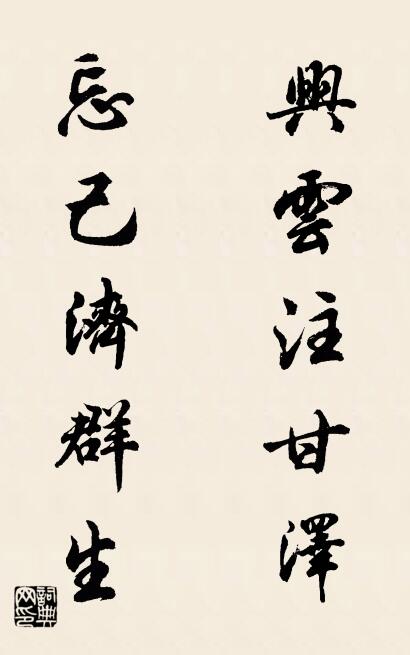 興雲注甘澤
忘己濟群生
詞典网印